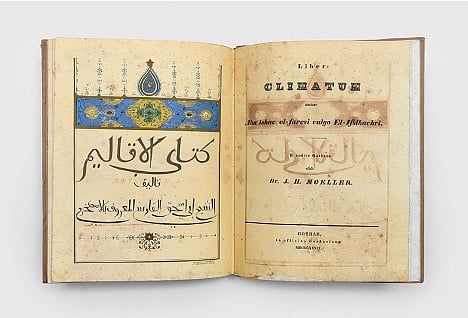 كتاب الاقاليم
تاليف
الشيخ ابي اسحق الفارسي المعروف بالاصطخري
Liber
CLIMATUM
auctore
Abu Ishac el-Faresi vulgo El-Issthachri.
E codice Gothano
edidit
Dr. J. H. MOELLER.
GOTHAE,
in officina